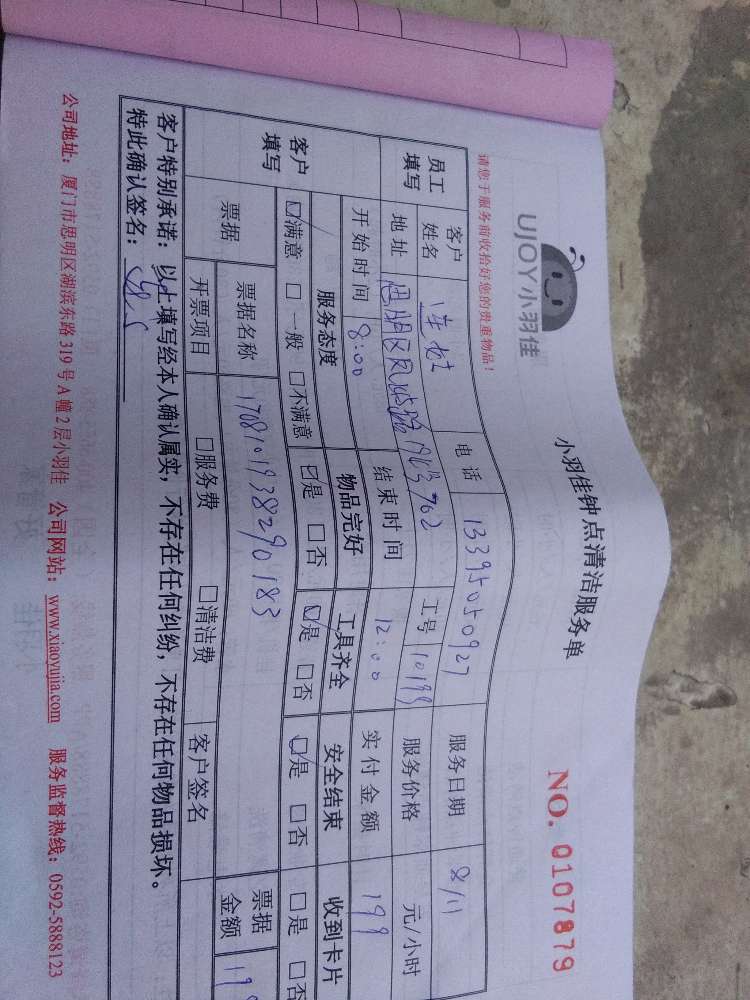 UJOY小羽佳
小羽佳钟点清洁服务单
NO. 0107879
请您于服务前收拾好您的贵重物品！
员工填写 客户姓名 电话 13395050927 服务日期 8/11
地址 思明区 762 工号 10199 服务价格 元/小时
开始时间 8:00 结束时间 12:00 实付金额 199
客户填写 服务态度 物品完好 工具齐全 安全结束 收到卡片
☑满意 □一般 □不满意 ☑是 □否 ☑是 □否 ☑是 □否 □是 □否
票据 票据名称 1708101938290183 票据金额
开票项目 □服务费 □清洁费 客户签名
客户特别承诺：以上填写经本人确认属实，不存在任何纠纷，不存在任何物品损坏。
特此确认签名：
公司地址：厦门市思明区湖滨东路319号A幢2层小羽佳 公司网站：www.xiaoyujia.com 服务监督热线：0592-5888123